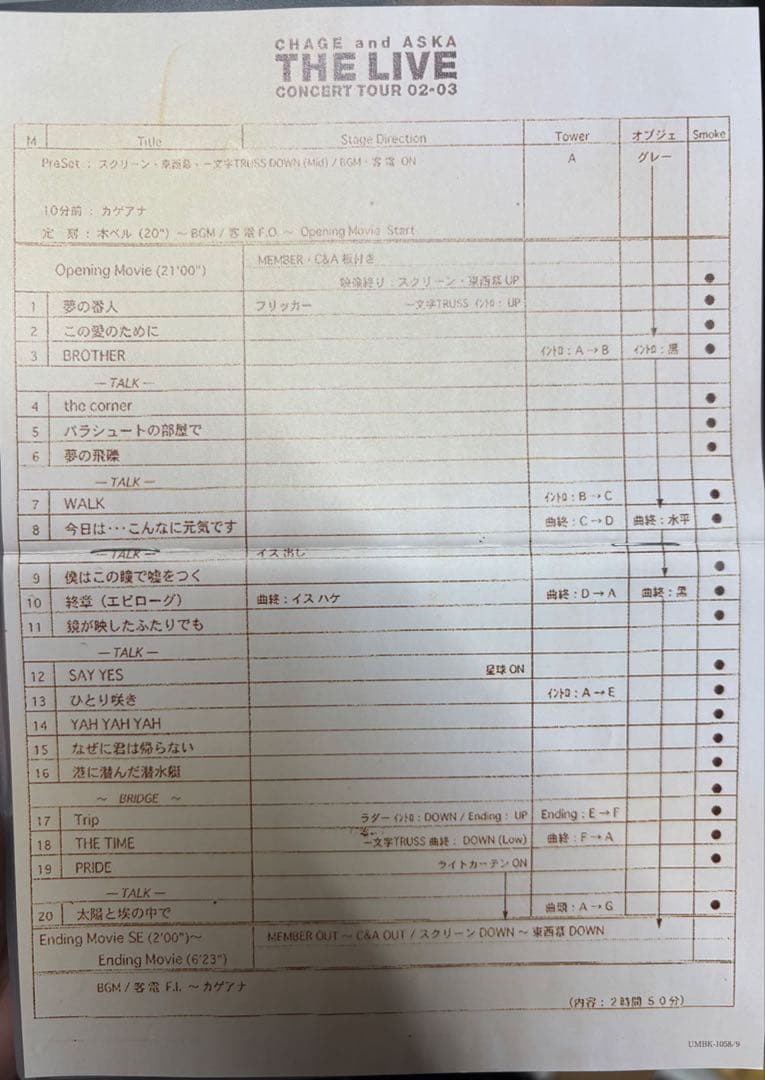 CHAGE and ASKA
THE LIVE
CONCERT TOUR 02•03
M Title Stage Direction Tower オブジェ Smoke
PreSet : スクリーン・東西幕・一文字TRUSS DOWN (Mid) / BGM・客電 ON A グレー
10分前 : カゲアナ
定 刻 : 本ベル (20") ～BGM / 客電F.O. ～ Opening Movie Start
Opening Movie (21'00") MEMBER・C&A 板付き
映像終り : スクリーン・東西幕 UP ●
1 夢の番人 フリッカー 一文字TRUSS ｲﾝﾄﾛ : UP ●
2 この愛のために ●
3 BROTHER ｲﾝﾄﾛ : A → B ｲﾝﾄﾛ : 黒 ●
— TALK —
4 the corner ●
5 パラシュートの部屋で ●
6 夢の飛礫 ●
— TALK —
7 WALK ｲﾝﾄﾛ : B → C ●
8 今日は･･･こんなに元気です 曲終 : C → D 曲終 : 水平 ●
— TALK — イス出し
9 僕はこの瞳で嘘をつく ●
10 終章（エピローグ） 曲終 : イス ハケ 曲終 : D → A 曲終 : 黒 ●
11 鏡が映したふたりでも ●
— TALK —
12 SAY YES 星球 ON ●
13 ひとり咲き ｲﾝﾄﾛ : A → E ●
14 YAH YAH YAH ●
15 なぜに君は帰らない ●
16 港に潜んだ潜水艇 ●
～ BRIDGE ～ ●
17 Trip ラダー ｲﾝﾄﾛ : DOWN / Ending : UP Ending : E → F ●
18 THE TIME 一文字TRUSS 曲終 : DOWN (Low) 曲終 : F → A ●
19 PRIDE ライトカーテン ON ●
— TALK —
20 太陽と埃の中で 曲頭 : A → G ●
Ending Movie SE (2'00")～ MEMBER OUT ～ C&A OUT / スクリーン DOWN ～ 東西幕 DOWN
Ending Movie (6'23")
BGM / 客電 F.I. ～ カゲアナ
（内容 : 2時間50分）
UMBK-1058/9